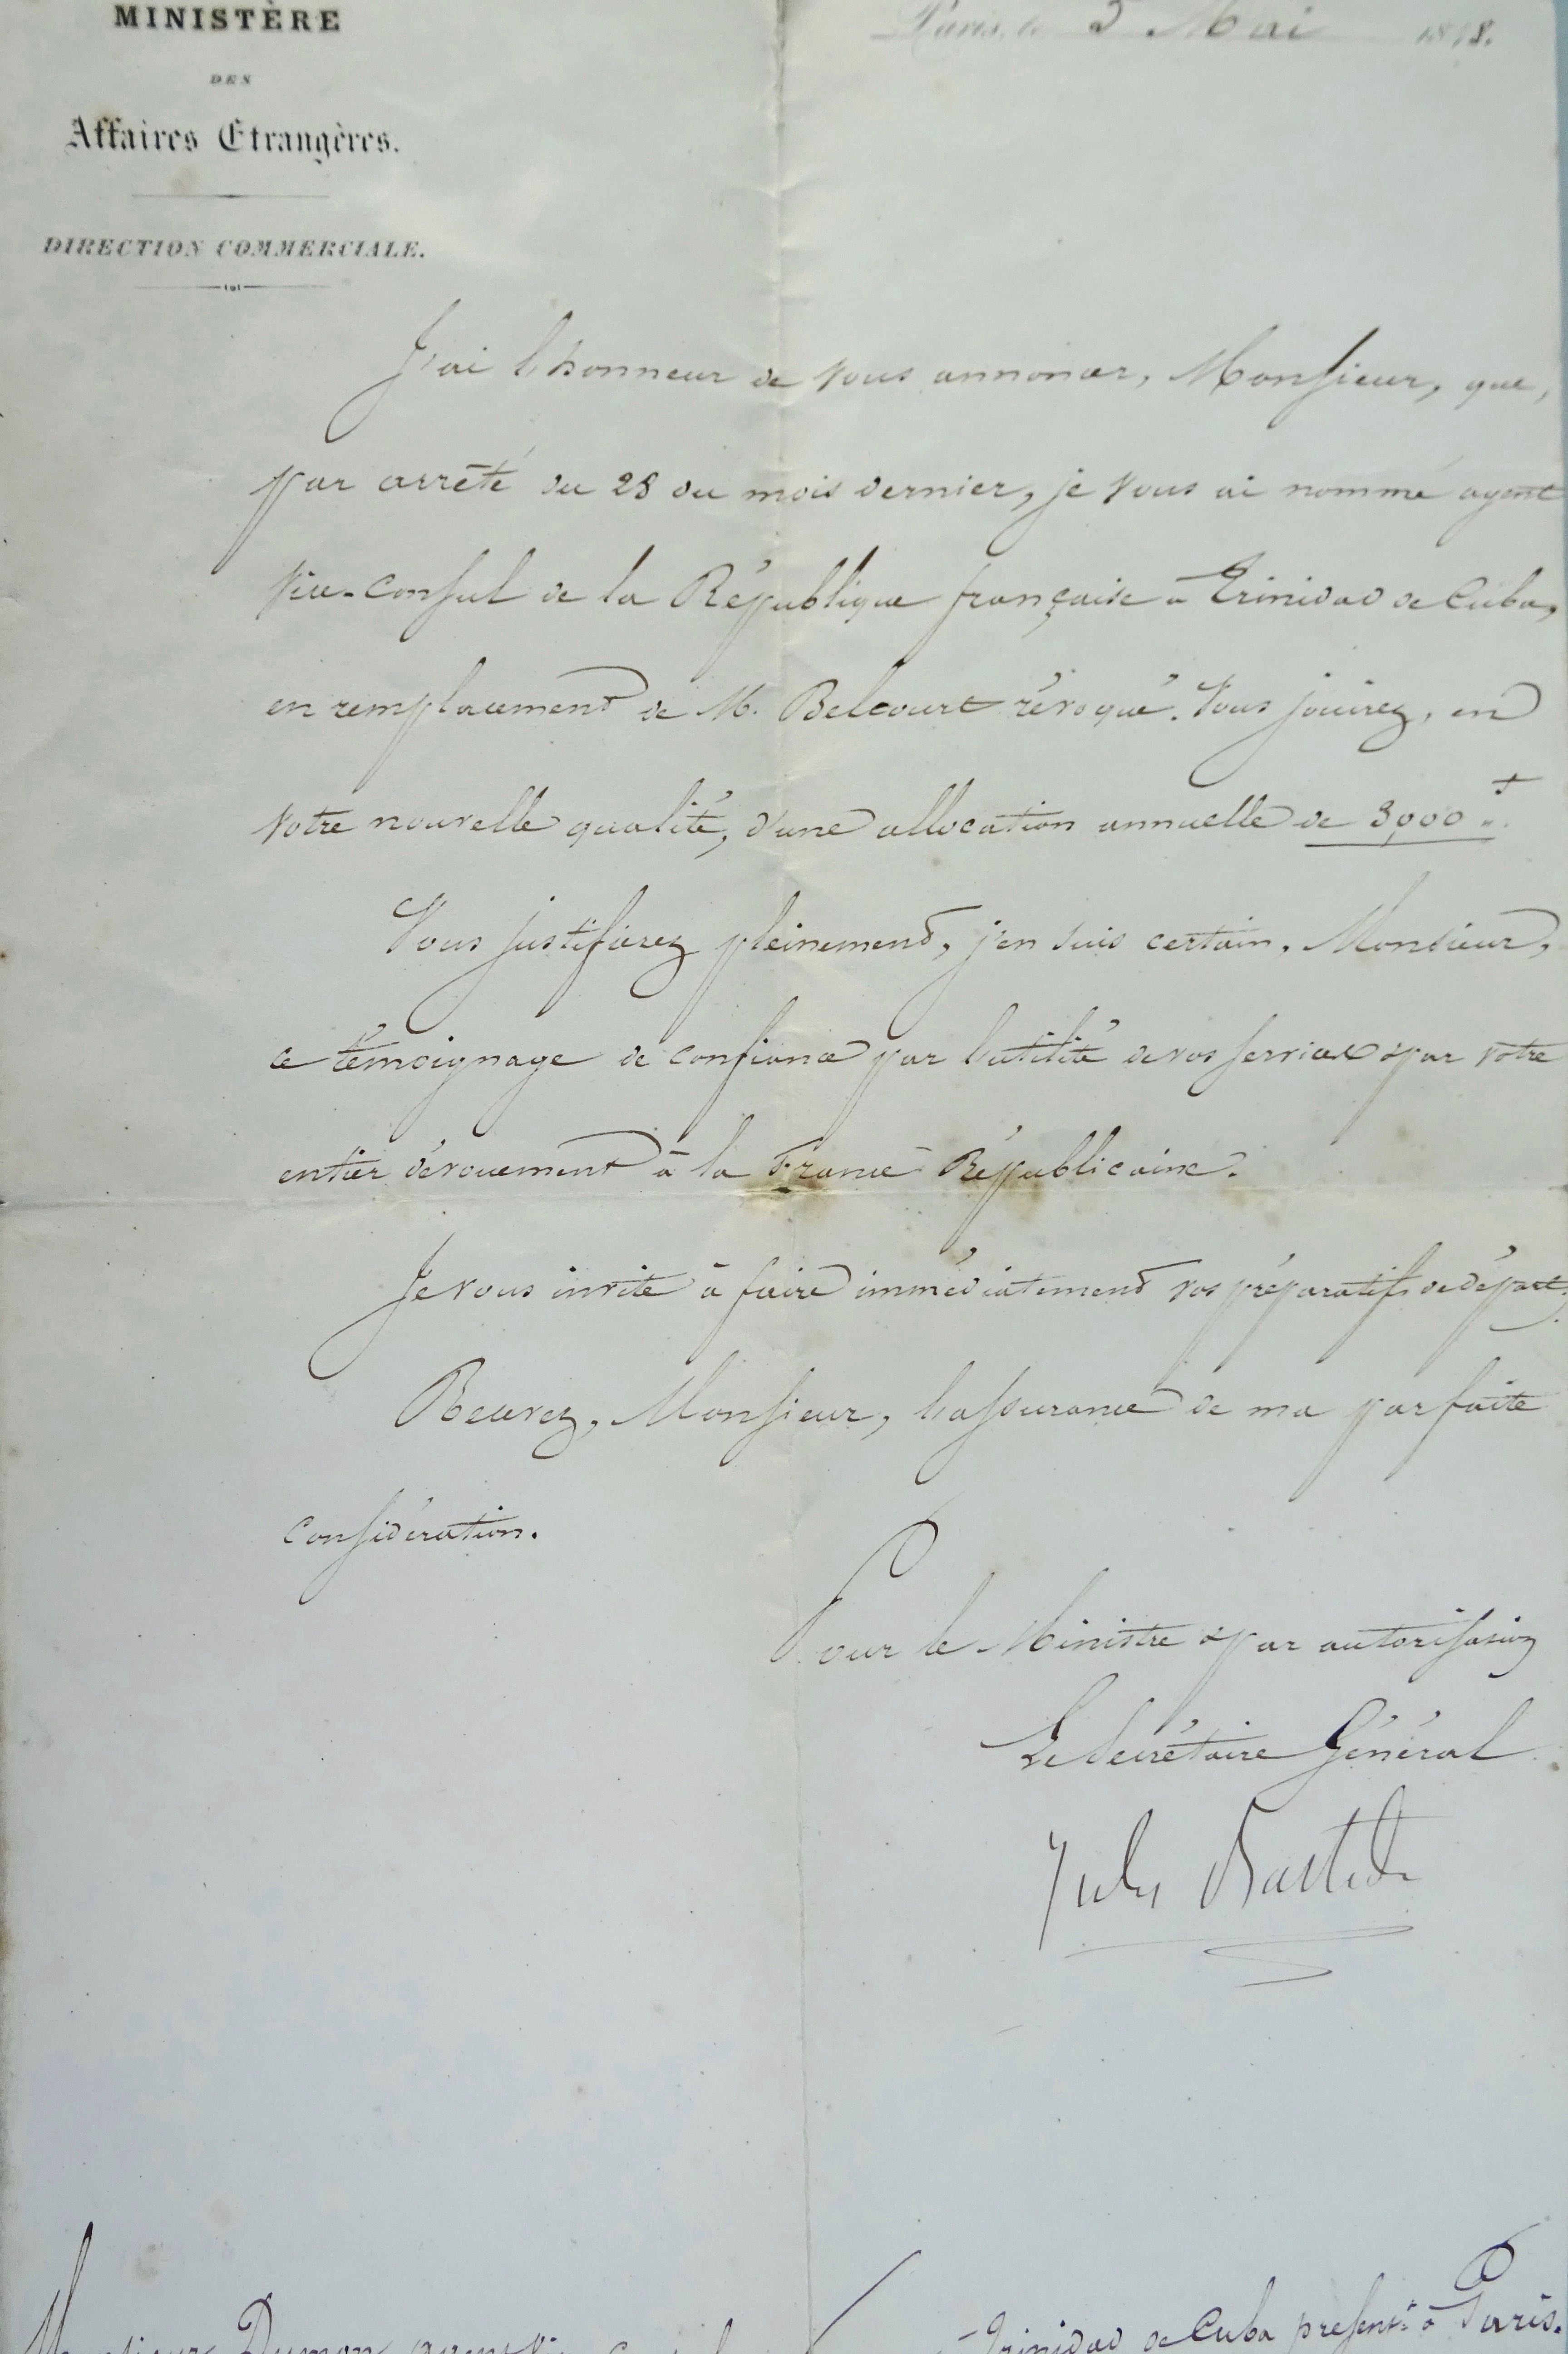 MINISTÈRE
DES
Affaires Etrangères.
DIRECTION COMMERCIALE.
Paris, le 5 Mai 1848.
J'ai l'honneur de vous annoncer, Monsieur, que,
par arrêté du 28 du mois dernier, je vous ai nommé agent
vice-Consul de la République française à Trinidad de Cuba,
en remplacement de M. Belcourt révoqué. Vous jouirez, en
votre nouvelle qualité, d'une allocation annuelle de 3,000 f.
Vous justifierez pleinement, j'en suis certain, Monsieur,
ce témoignage de confiance par l'utilité de vos services & par votre
entier dévouement à la France Républicaine.
Je vous invite à faire immédiatement vos préparatifs de départ.
Recevez, Monsieur, l'assurance de ma parfaite
considération.
Pour le Ministre & par autorisation
Le Secrétaire Général
Jules Bastide
Monsieur Dumon, agent Trinidad de Cuba présent à Paris.